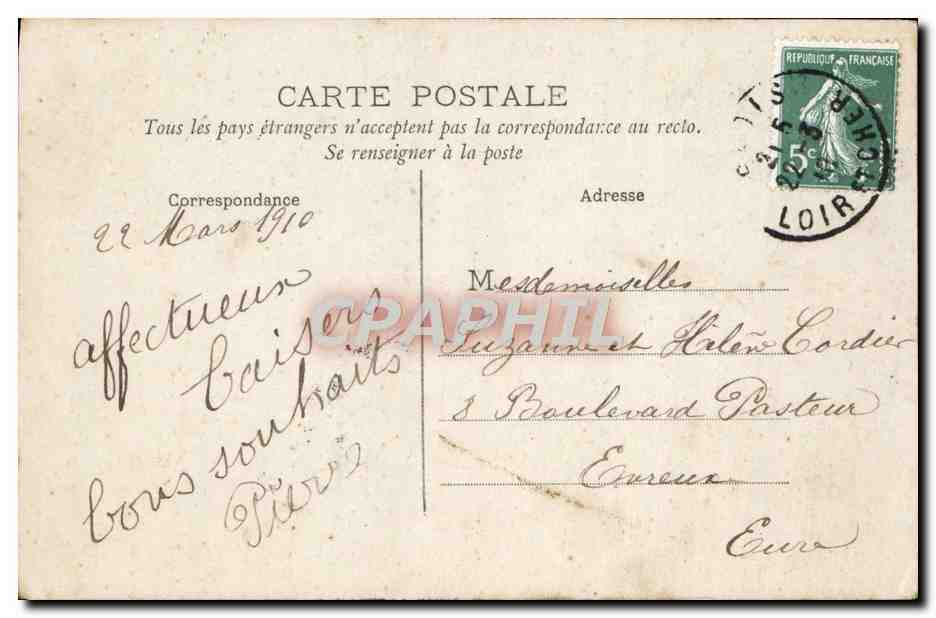 CARTE POSTALE
Tous les pays étrangers n'acceptent pas la correspondance au recto.
Se renseigner à la poste
REPUBLIQUE FRANÇAISE
5c
21 5
22 -3
LOIR ET CHER
Correspondance
22 Mars 1910
affectueux
baisers
bons souhaits
Pierre
Adresse
Mesdemoiselles
Suzanne et Hélène Cordier
8 Boulevard Pasteur
Evreux
Eure
CPAPHIL